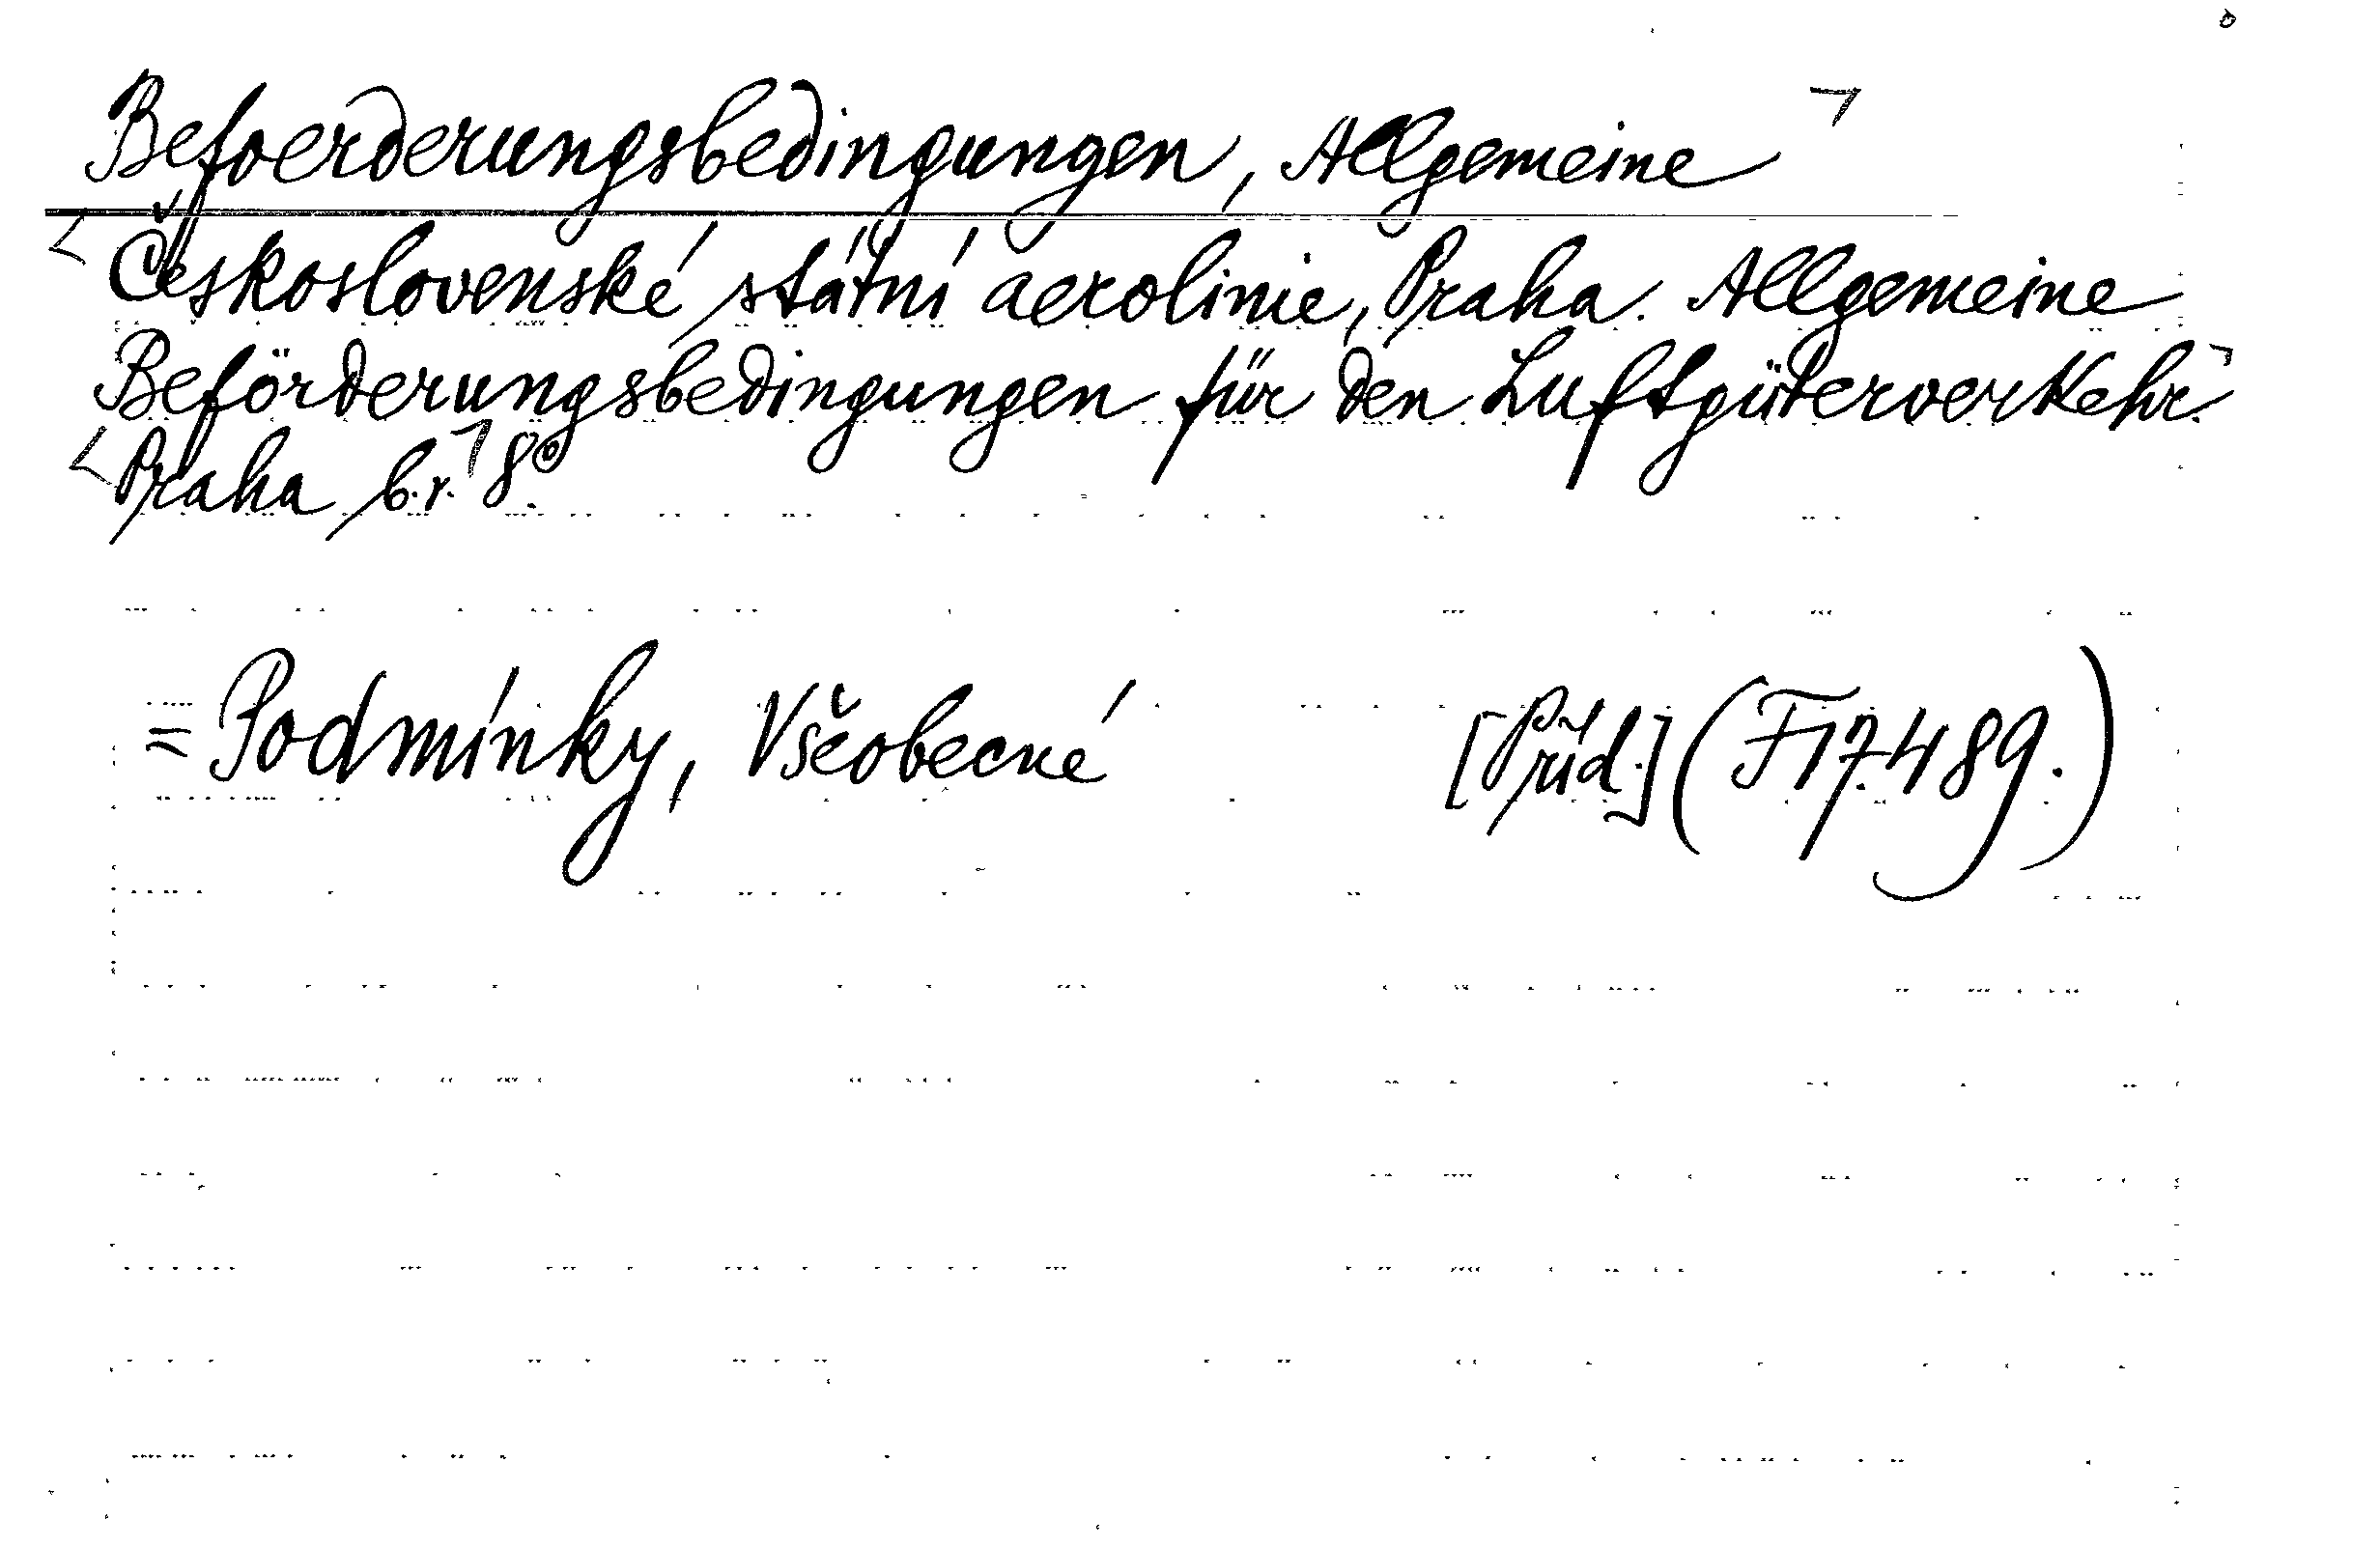 Befoerderungsbedingungen, Allgemeine
Československé státní aerolinie, Praha. Allgemeine
Beförderungsbedingungen für den Luftgüterverkehr.
Praha b.r. 8°.
= Podmínky, Všeobecné [Příd.] (F 17.489.)